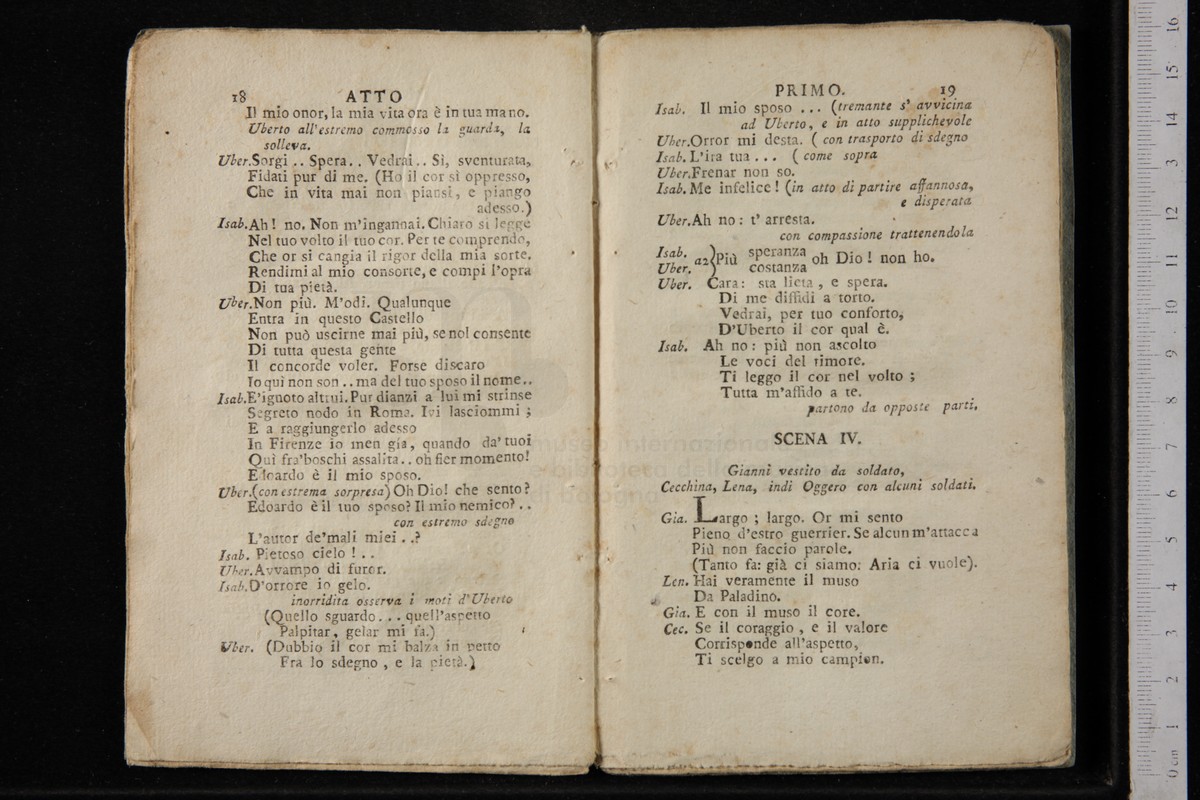 18 ATTO
Il mio onor, la mia vita ora è in tua mano.
Uberto all'estremo commosso la guarda, la
solleva.
Uber.Sorgi .. Spera.. Vedrai.. Sì, sventurata,
Fidati pur di me. (Ho il cor sì oppresso,
Che in vita mai non piansi, e piango
adesso.)
Isab.Ah! no. Non m'ingannai. Chiaro si legge
Nel tuo volto il tuo cor. Per te comprendo,
Che or si cangia il rigor della mia sorte.
Rendimi al mio consorte, e compi l'opra
Di tua pietà.
Uber.Non più. M'odi. Qualunque
Entra in questo Castello
Non può uscirne mai più, se nol consente
Di tutta questa gente
Il concorde voler. Forse discaro
Io quì non son .. ma del tuo sposo il nome..
Isab.E'ignoto altrui. Pur dianzi a lui mi strinse
Segreto nodo in Roma. Ivi lasciommi ;
E a raggiungerlo adesso
In Firenze io men gia, quando da'tuoi
Quì fra'boschi assalita.. oh fier momento!
Edoardo è il mio sposo.
Uber.(con estrema sorpresa) Oh Dio! che sento?
Edoardo è il tuo sposo? Il mio nemico? ..
con estremo sdegno
L'autor de'mali miei ..?
Isab. Pietoso cielo ! ..
Uber.Avvampo di furor.
Isab.D'orrore io gelo.
inorridita osserva i moti d'Uberto
(Quello sguardo... quell'aspetto
Palpitar, gelar mi fa.)
Uber. (Dubbio il cor mi balza in petto
Fra lo sdegno , e la pietà.)
PRIMO. 19
Isab. Il mio sposo ... (tremante s' avvicina
ad Uberto, e in atto supplichevole
Uber.Orror mi desta. ( con trasporto di sdegno
Isab. L'ira tua ... ( come sopra
Uber.Frenar non so.
Isab. Me infelice ! (in atto di partire affannosa,
e disperata
Uber.Ah no : t' arresta.
con compassione trattenendola
Isab. speranza
a2 Più oh Dio ! non ho.
Uber. costanza
Uber. Cara: sta lieta , e spera.
Di me diffidi a torto.
Vedrai, per tuo conforto,
D'Uberto il cor qual è.
Isab. Ah no : più non ascolto
Le voci del timore.
Ti leggo il cor nel volto ;
Tutta m'affido a te.
partono da opposte parti.
SCENA IV.
Gianni vestito da soldato,
Cecchina, Lena, indi Oggero con alcuni soldati.
Gia. Largo ; largo. Or mi sento
Pieno d'estro guerrier. Se alcun m'attacca
Più non faccio parole.
(Tanto fa: già ci siamo: Aria ci vuole).
Len. Hai veramente il muso
Da Paladino.
Gia. E con il muso il core.
Cec. Se il coraggio , e il valore
Corrisponde all'aspetto,
Ti scelgo a mio campion.
museo internazionale
e biblioteca della
di bologna
0 cm 1 2 3 4 5 6 7 8 9 10 11 12 13 14 15 16